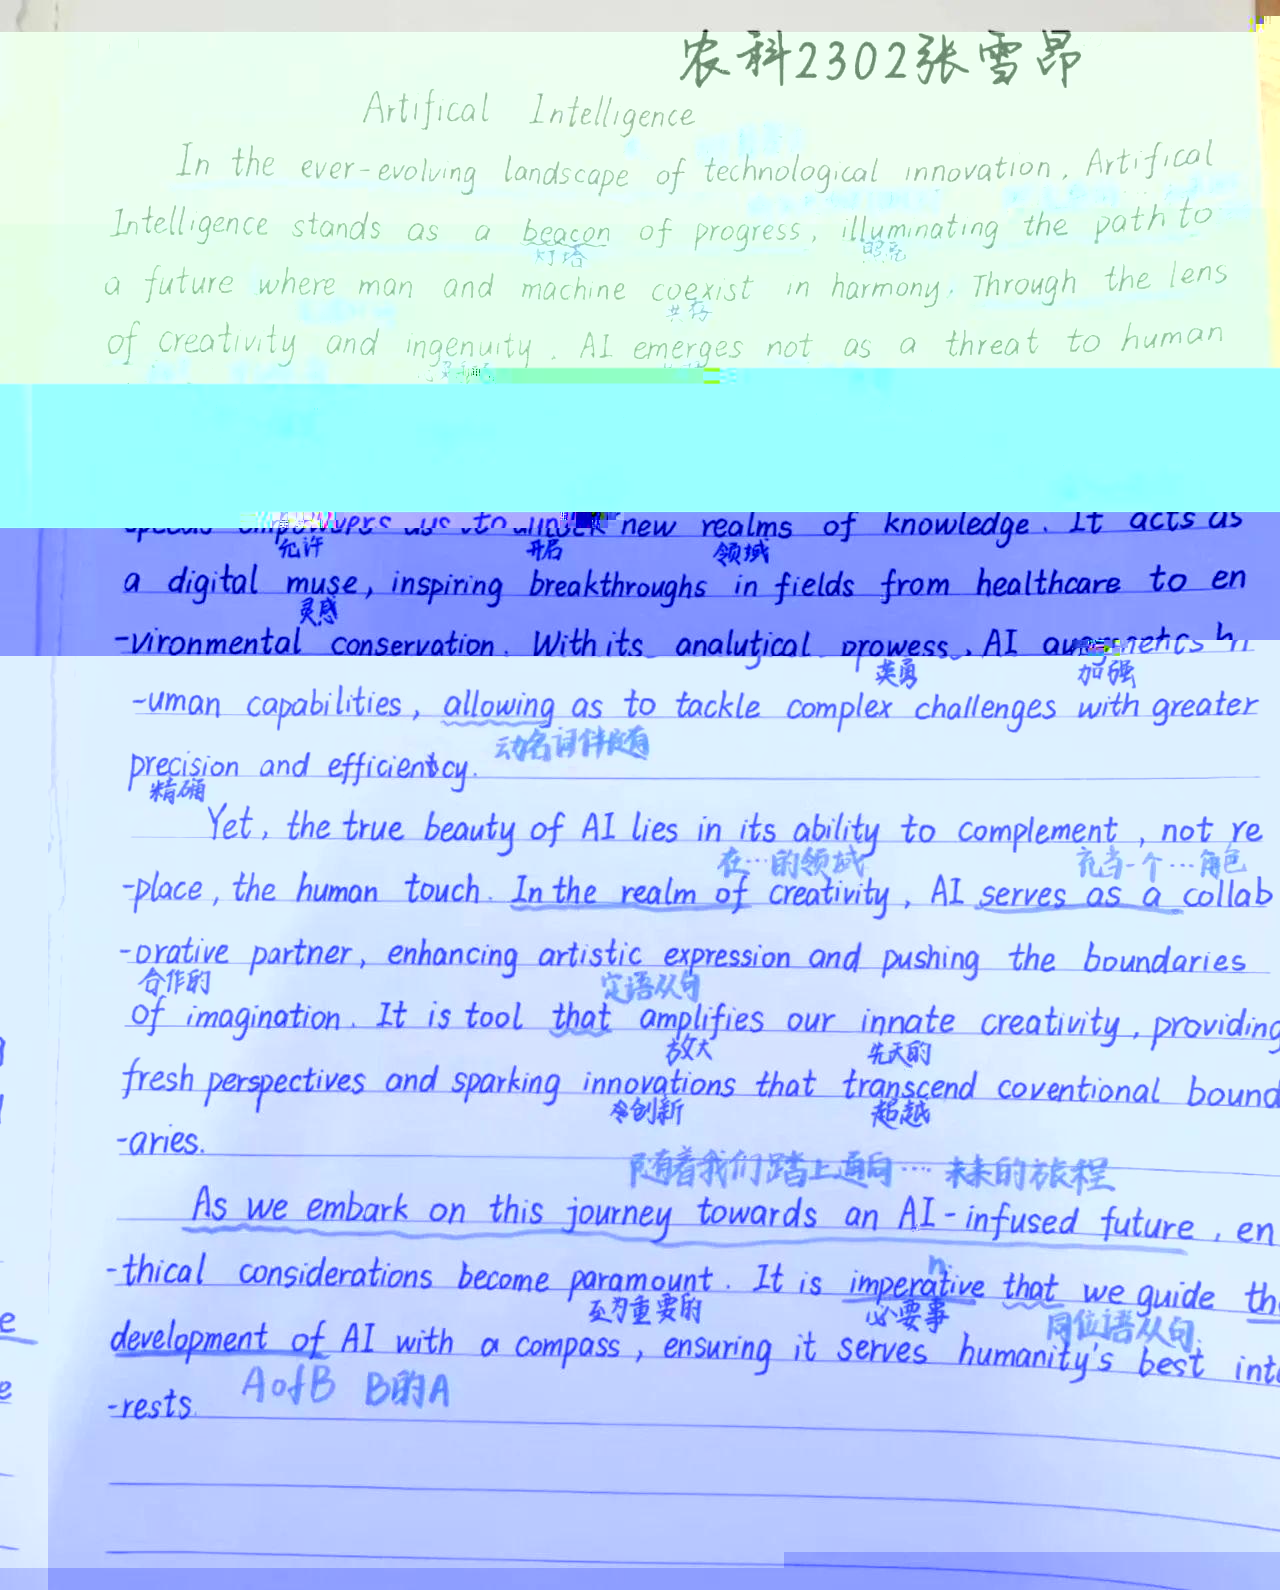 农科2302张雪昂
Artifical Intelligence
In the ever-evolving landscape of technological innovation, Artifical
Intelligence stands as a beacon of progress, illuminating the path to
灯塔 照亮
a future where man and machine coexist in harmony. Through the lens
共存
of creativity and ingenuity, AI emerges not as a threat to human
us to unlock new realms of knowledge. It acts as
允许 开启 领域
a digital muse, inspiring breakthroughs in fields from healthcare to en
灵感
-vironmental conservation. With its analytical prowess, AI
英勇 加强
-uman capabilities, allowing as to tackle complex challenges with greater
动名词伴随
precision and efficiency.
精确
Yet, the true beauty of AI lies in its ability to complement, not re
在…的领域 充当一个…角色
-place, the human touch. In the realm of creativity, AI serves as a collab
-orative partner, enhancing artistic expression and pushing the boundaries
合作的 定语从句
of imagination. It is tool that amplifies our innate creativity, providing
放大 先天的
fresh perspectives and sparking innovations that transcend coventional bound
创新 超越
-aries.
随着我们踏上通向…未来的旅程
As we embark on this journey towards an AI-infused future, en
n.
-thical considerations become paramount. It is imperative that we guide the
至为重要的 必要事 同位语从句
development of AI with a compass, ensuring it serves humanity's best inte
-rests.
A of B B的A